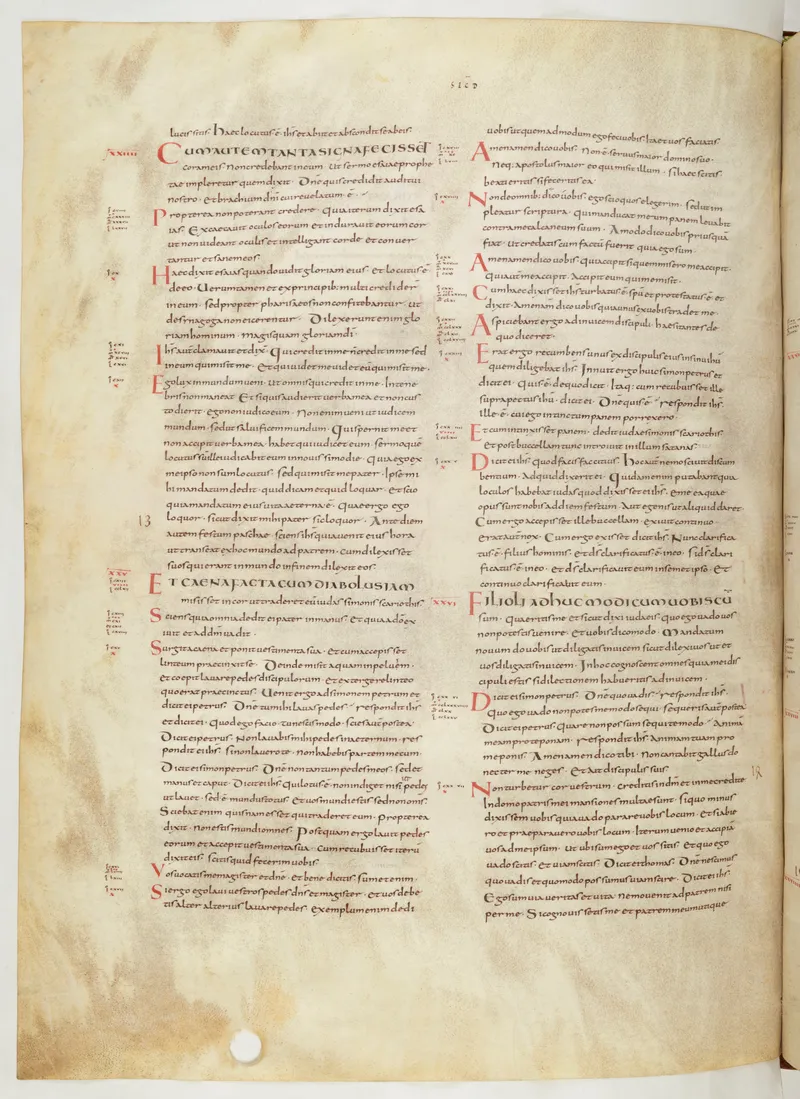 SECD
lucis sitis. Haec locutus ē. ihs et abiit et abscondit se ab eis.
XXIIII
CUM AUTEM TANTA SIGNA FECISSET
coram eis. Non credebant in eum. Ut sermo esaiae prophe
tae impleretur quem dixit. Dne quis credidit auditui
nostro. Et brachium dni cui revelatum ē.
Propterea non poterant credere. Quia iterum dixit esa
ias. Excaecavit oculos eorum et induravit eorum cor
ut non videant oculis et intellegant corde. Et conver
tantur et sanem eos.
Haec dixit esaias quando vidit gloriam eius. Et locutus ē
de eo. Verumtamen et ex principib; multi credider
in eum. Sed propter pharisaeos non confitebantur. Ut
de synagoga non eicerentur. Dilexerunt enim glo
riam hominum. Magis quam gloriam di.
Ihs aut clamavit et dix. Qui credit in me. Non credit in me sed
in eum qui misit me. Et qui videt me videt eū qui misit me.
Ego lux in mundum veni. Ut omnis qui credit in me. In tene
bris non maneat. Et si quis audierit verba mea et non cus
todierit. Ego non iudico eum. Non enim veni ut iudicem
mundum. Sed ut salvificem mundum. Qui spernit me et
non accipit verba mea. Habet qui iudicet eum. Sermo quē
locutus sum ille iudicabit eum in novissimo die. Quia ego ex
me ipso non sum locutus. Sed qui misit me pater. Ipse mi
hi mandatum dedit. Quid dicam et quid loquar. Et scio
quia mandatum eius vita aeterna ē. Quae ergo ego
13
loquor. Sicut dixit mihi pater sic loquor. Ante diem
autem festum paschae. Sciens ihs quia venit eius hora
ut transeat ex hoc mundo ad patrem. Cum dilexisset
suos qui erant in mundo in finem dilexit eos.
XXV
ET CAENA FACTA CUM DIABOLUS IAM
misisset in cor ut traderet eū iudas simonis scariothis
Sciens quia omnia dedit ei pater in manus. Et quia a dō ex
ivit et ad dm vadit.
Surgit a caena et ponit vestimenta sua. Et cum accepisset
linteum praecinxit se. Deinde misit aquam in pelvem.
Et coepit lavare pedes discipulorum. Et extergere linteo
quo erat praecinctus. Venit ergo ad simonem petrum et
dicit ei petrus. Dne tu mihi lavas pedes. Respondit ihs
et dicit ei. Quod ego facio. Tu nescis modo. Scies aut postea.
Dicit ei petrus. Non lavabis mihi pedes in aeternum. Res
pondit ei ihs. Si non lavero te. Non habebis partem mecum.
Dicit ei simon petrus. Dne non tantum pedes meos. Sed et
manus et caput. Dicit ei ihs. Qui lotus ē. Non indiget nisi pedes
ut lavet. Sed ē mundus totus. Et vos mundi estis sed non omnis.
Sciebat enim quisnam esset qui traderet eum. Propterea
dixit. Non estis mundi omnes. Postquam ergo lavit pedes
eorum et accepit vestimenta sua. Cum recubuisset iterū
dixit eis. Scitis quid fecerim vobis.
Vos vocatis me magister et dne. Et bene dicitis. Sum etenim.
Si ergo ego lavi vestros pedes dns et magister. Et vos debe
tis alter alterius lavare pedes. Exemplum enim dedi
vobis ut quemadmodum ego feci vobis. Ita et vos faciatis
Amen amen dico vobis. Non ē servus maior domno suo.
Neq; apostolus maior eo qui misit illum. Si haec scitis
beati eritis si feceritis ea.
Non de omnib; dico vobis. Ego scio quos elegerim. Sed ut im
pleatur scriptura. Qui manducat mecum panem levabit
contra me calcaneum suum. Amodo dico vobis priusquā
fiat. Ut credatis cum factū fuerit quia ego sum.
Amen amen dico vobis. Qui accipit si quem misero me accipit.
Qui aut me accipit. Accipit eum qui me misit.
Cum haec dixisset ihs turbatus ē spu et protestatus ē. et
dixit. Amen amen dico vobis quia unus ex vobis tradet me.
Aspiciebant ergo ad invicem discipuli. Haesitantes de
quo diceret.
Erat ergo recumbens unus ex discipulis eius in sinu ihu
quem diligebat ihs. Innuit ergo huic simon petrus et
dicit ei. Quis ē. de quo dicit. Itaq; cum recubuisset ille
supra pectus ihu. dicit ei. Dne quis ē. Respondit ihs.
Ille ē. cui ego intinctum panem porrexero.
Et cum intinxisset panem. dedit iudae simonis scariothis
Et post buccellam tunc introivit in illum satanas.
Dicit ei ihs. Quod facis fac citius. Hoc aut nemo scivit discum
bentium. Ad quid dixerit ei. Quidam enim putabant quia
loculos habebat iudas quod dixisset ei ihs. Eme ea quae
opus sunt nobis ad diem festum. Aut egenis ut aliquid daret.
Cum ergo accepisset ille buccellam. exivit continuo.
Erat aut nox. Cum ergo exisset dicit ihs. Nunc clarifica
tus ē. filius hominis. et ds clarificatus ē. in eo. Si ds clari
ficatus ē in eo. Et ds clarificavit eum in semet ipso. Et
continuo clarificavit eum.
XXVI
FILIOLI ADHUC MODICUM VOBISCŪ
sum. Quaeritis me et sicut dixi iudaeis. quo ego vado vos
non potestis venire. Et vobis dico modo. Mandatum
novum do vobis ut diligatis invicem sicut dilexi vos ut et
vos diligatis invicem. In hoc cognoscent omnes quia mei dis
cipuli estis si dilectionem habueritis ad invicem.
Dicit ei simon petrus. Dne quo vadis. Respondit ihs.
Quo ego vado non potes me modo sequi. sequeris aut postea
Dicit ei petrus. Quare non possum sequi te modo. Animā
meam pro te ponam. Respondit ihs. Animam tuam pro
me ponis. Amen amen dico tibi. Non cantabit gallus do
nec ter me neges. Et ait discipulis suis.
Non turbetur cor vestrum. Creditis in dm et in me credite
In domo patris mei mansiones multae sunt. Si quo minus
dixissem vobis quia vado parare vobis locum. Et si abie
ro et praeparavero vobis locum. Iterum venio et accipiā
vos ad me ipsum. Ut ubi sum ego et vos sitis. Et quo ego
vado scitis. et viam scitis. Dicit ei thomas. Dne nescimus
quo vadis et quomodo possumus viam scire. Dicit ei ihs.
Ego sum via veritas et vita. Nemo venit ad patrem nisi
per me. Si cognovissetis me et patrem meum utique